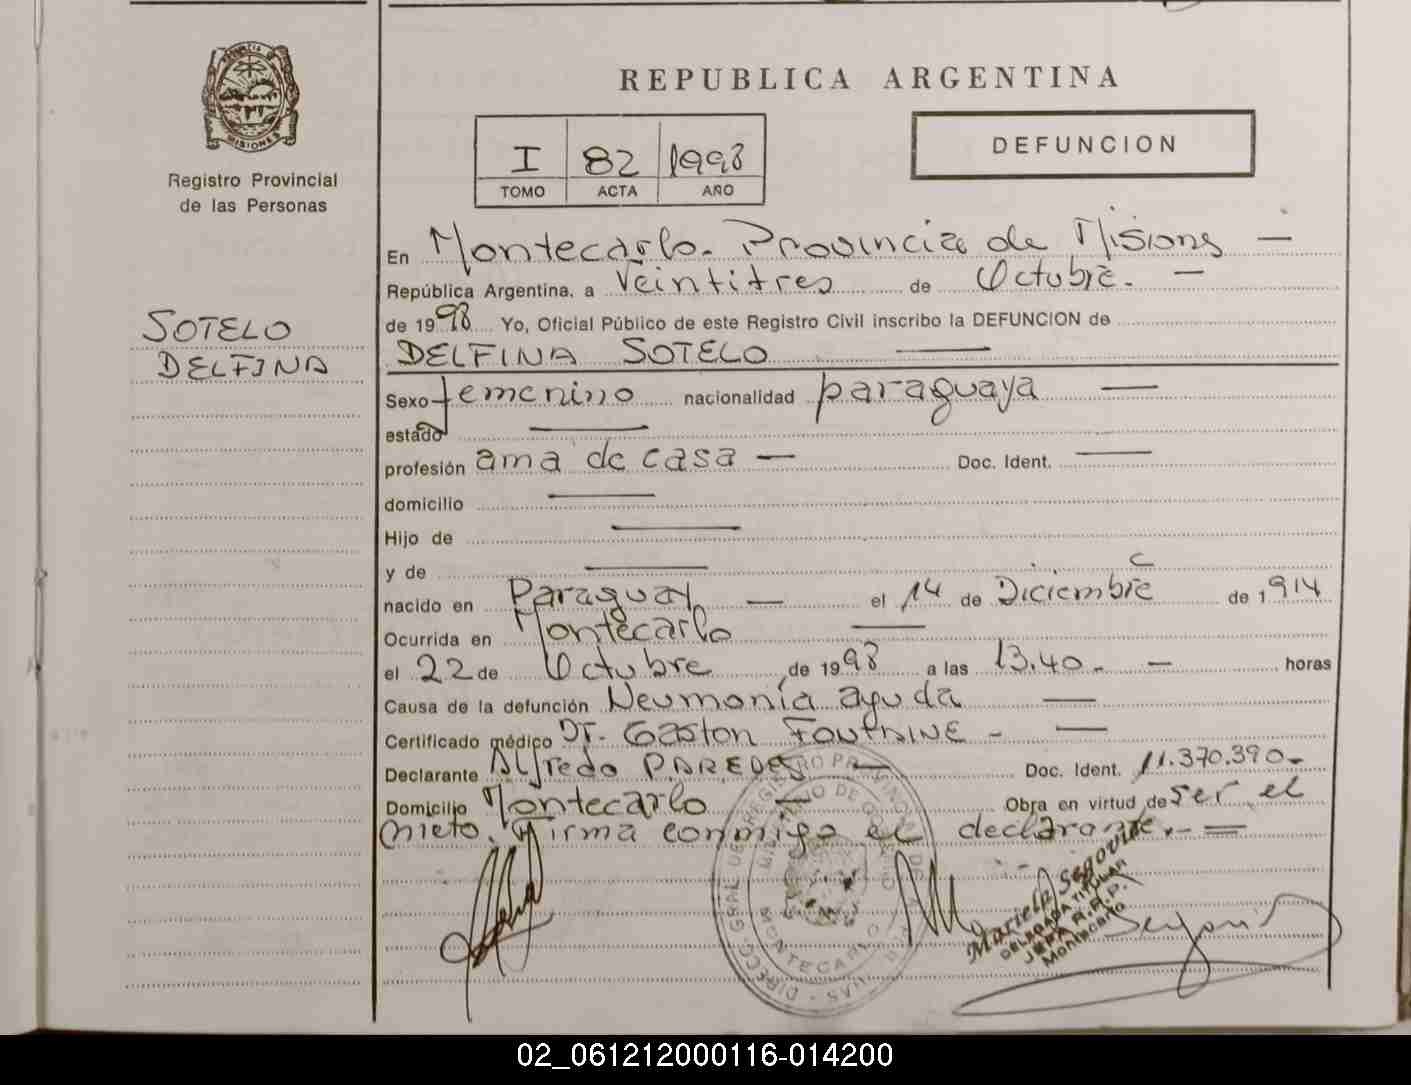 PROVINCIA DE
MISIONES
Registro Provincial
de las Personas
SOTELO
DELFINA
REPUBLICA ARGENTINA
I 82 1998
TOMO ACTA AÑO
DEFUNCION
En Montecarlo. Provincia de Misiones —
República Argentina, a Veintitres de Octubre. —
de 1998 Yo, Oficial Público de este Registro Civil inscribo la DEFUNCION de
DELFINA SOTELO —
Sexo femenino nacionalidad paraguaya —
estado —
profesión ama de casa — Doc. Ident. —
domicilio —
Hijo de —
y de —
nacido en Paraguay — el 14 de Diciembre de 1914
Ocurrida en Montecarlo —
el 22 de Octubre de 1998 a las 13.40 - — horas
Causa de la defunción Neumonía aguda —
Certificado médico Dr. Gaston —
Declarante Alfredo PAREDES — Doc. Ident. 11.370.390-
Domicilio Montecarlo — Obra en virtud de ser el
nieto. Firma conmigo el declarante.- —
DIRECC. GRAL DE REGISTRO PROVINCIAL DE
MINISTERIO DE GOBIERNO
MONTECARLO
Mariela Segovia
DELEGADA TITULAR
JEFA R.R.P.
Montecarlo
02_061212000116-014200